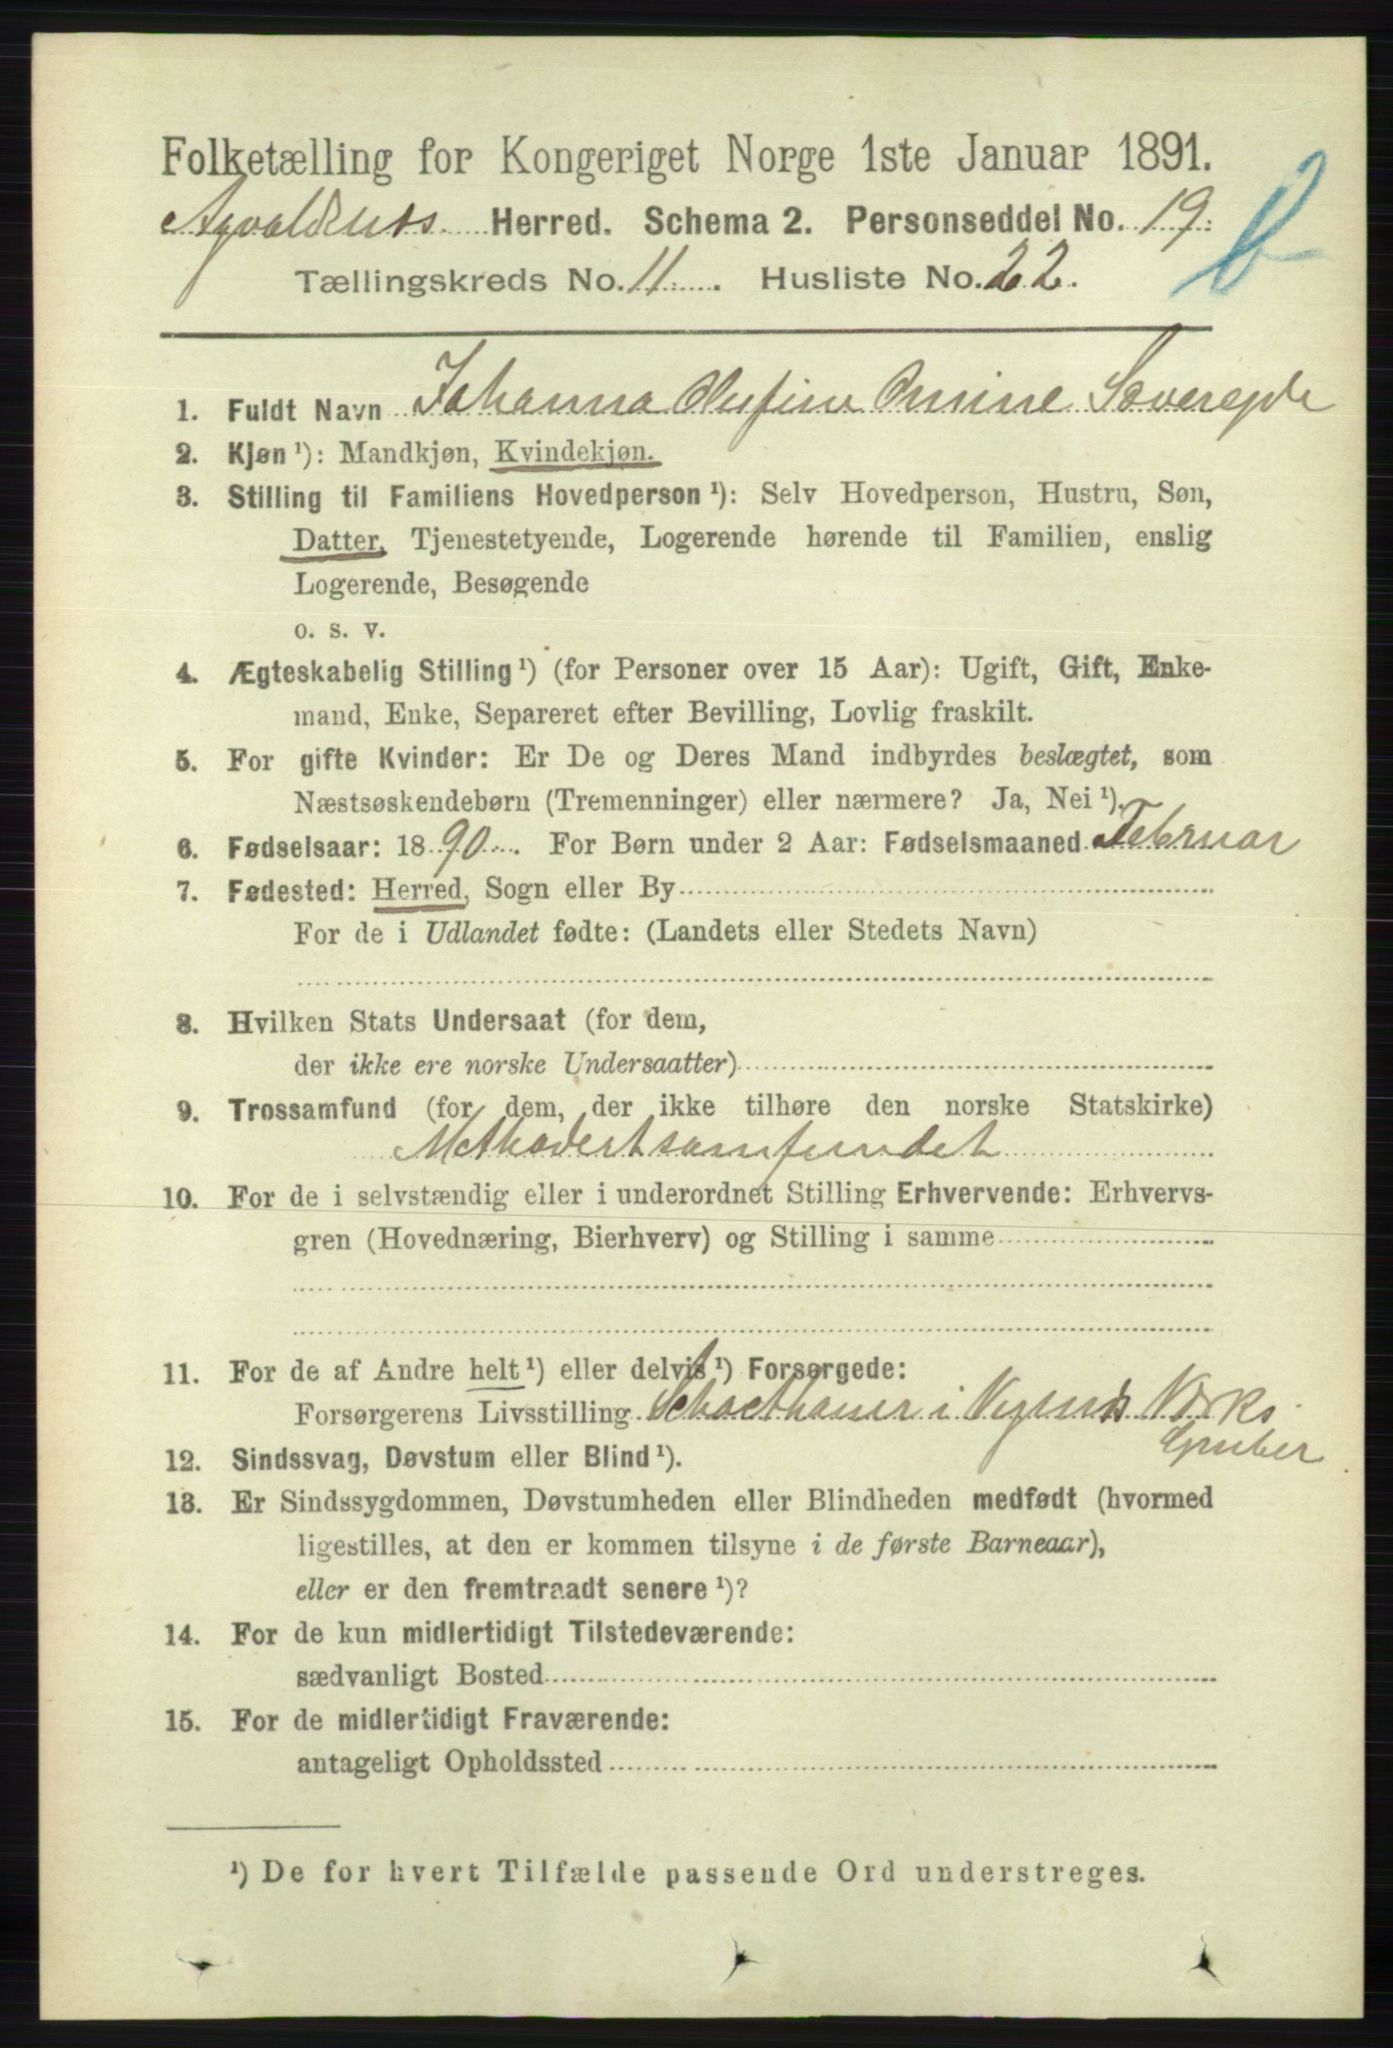 Folketælling for Kongeriget Norge 1ste Januar 1891.
Herred. Schema 2. Personseddel No. 19.
Tællingskreds No. 11. Husliste No. 22.
1. Fuldt Navn Johanna
2. Kjøn ¹): Mandkjøn, Kvindekjøn.
3. Stilling til Familiens Hovedperson ¹): Selv Hovedperson, Hustru, Søn,
Datter, Tjenestetyende, Logerende hørende til Familien, enslig
Logerende, Besøgende
o. s. v.
4. Ægteskabelig Stilling ¹) (for Personer over 15 Aar): Ugift, Gift, Enke-
mand, Enke, Separeret efter Bevilling, Lovlig fraskilt.
5. For gifte Kvinder: Er De og Deres Mand indbyrdes beslægtet, som
Næstsøskendebørn (Tremenninger) eller nærmere? Ja, Nei ¹).
6. Fødselsaar: 1890. For Børn under 2 Aar: Fødselsmaaned Februar
7. Fødested: Herred, Sogn eller By
For de i Udlandet fødte: (Landets eller Stedets Navn)
8. Hvilken Stats Undersaat (for dem,
der ikke ere norske Undersaatter)
9. Trossamfund (for dem, der ikke tilhøre den norske Statskirke)
10. For de i selvstændig eller i underordnet Stilling Erhvervende: Erhvervs-
gren (Hovednæring, Bierhverv) og Stilling i samme
11. For de af Andre helt ¹) eller delvis ¹) Forsørgede:
Forsørgerens Livsstilling i Verks
Gruber
12. Sindssvag, Døvstum eller Blind ¹).
13. Er Sindssygdommen, Døvstumheden eller Blindheden medfødt (hvormed
ligestilles, at den er kommen tilsyne i de første Barneaar),
eller er den fremtraadt senere ¹)?
14. For de kun midlertidigt Tilstedeværende:
sædvanligt Bosted
15. For de midlertidigt Fraværende:
antageligt Opholdssted
¹) De for hvert Tilfælde passende Ord understreges.